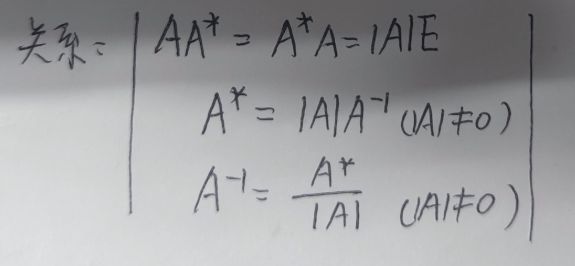 关系: AA* = A*A = |A|E
A* = |A|A⁻¹ (|A|≠0)
A⁻¹ = A*/|A| (|A|≠0)